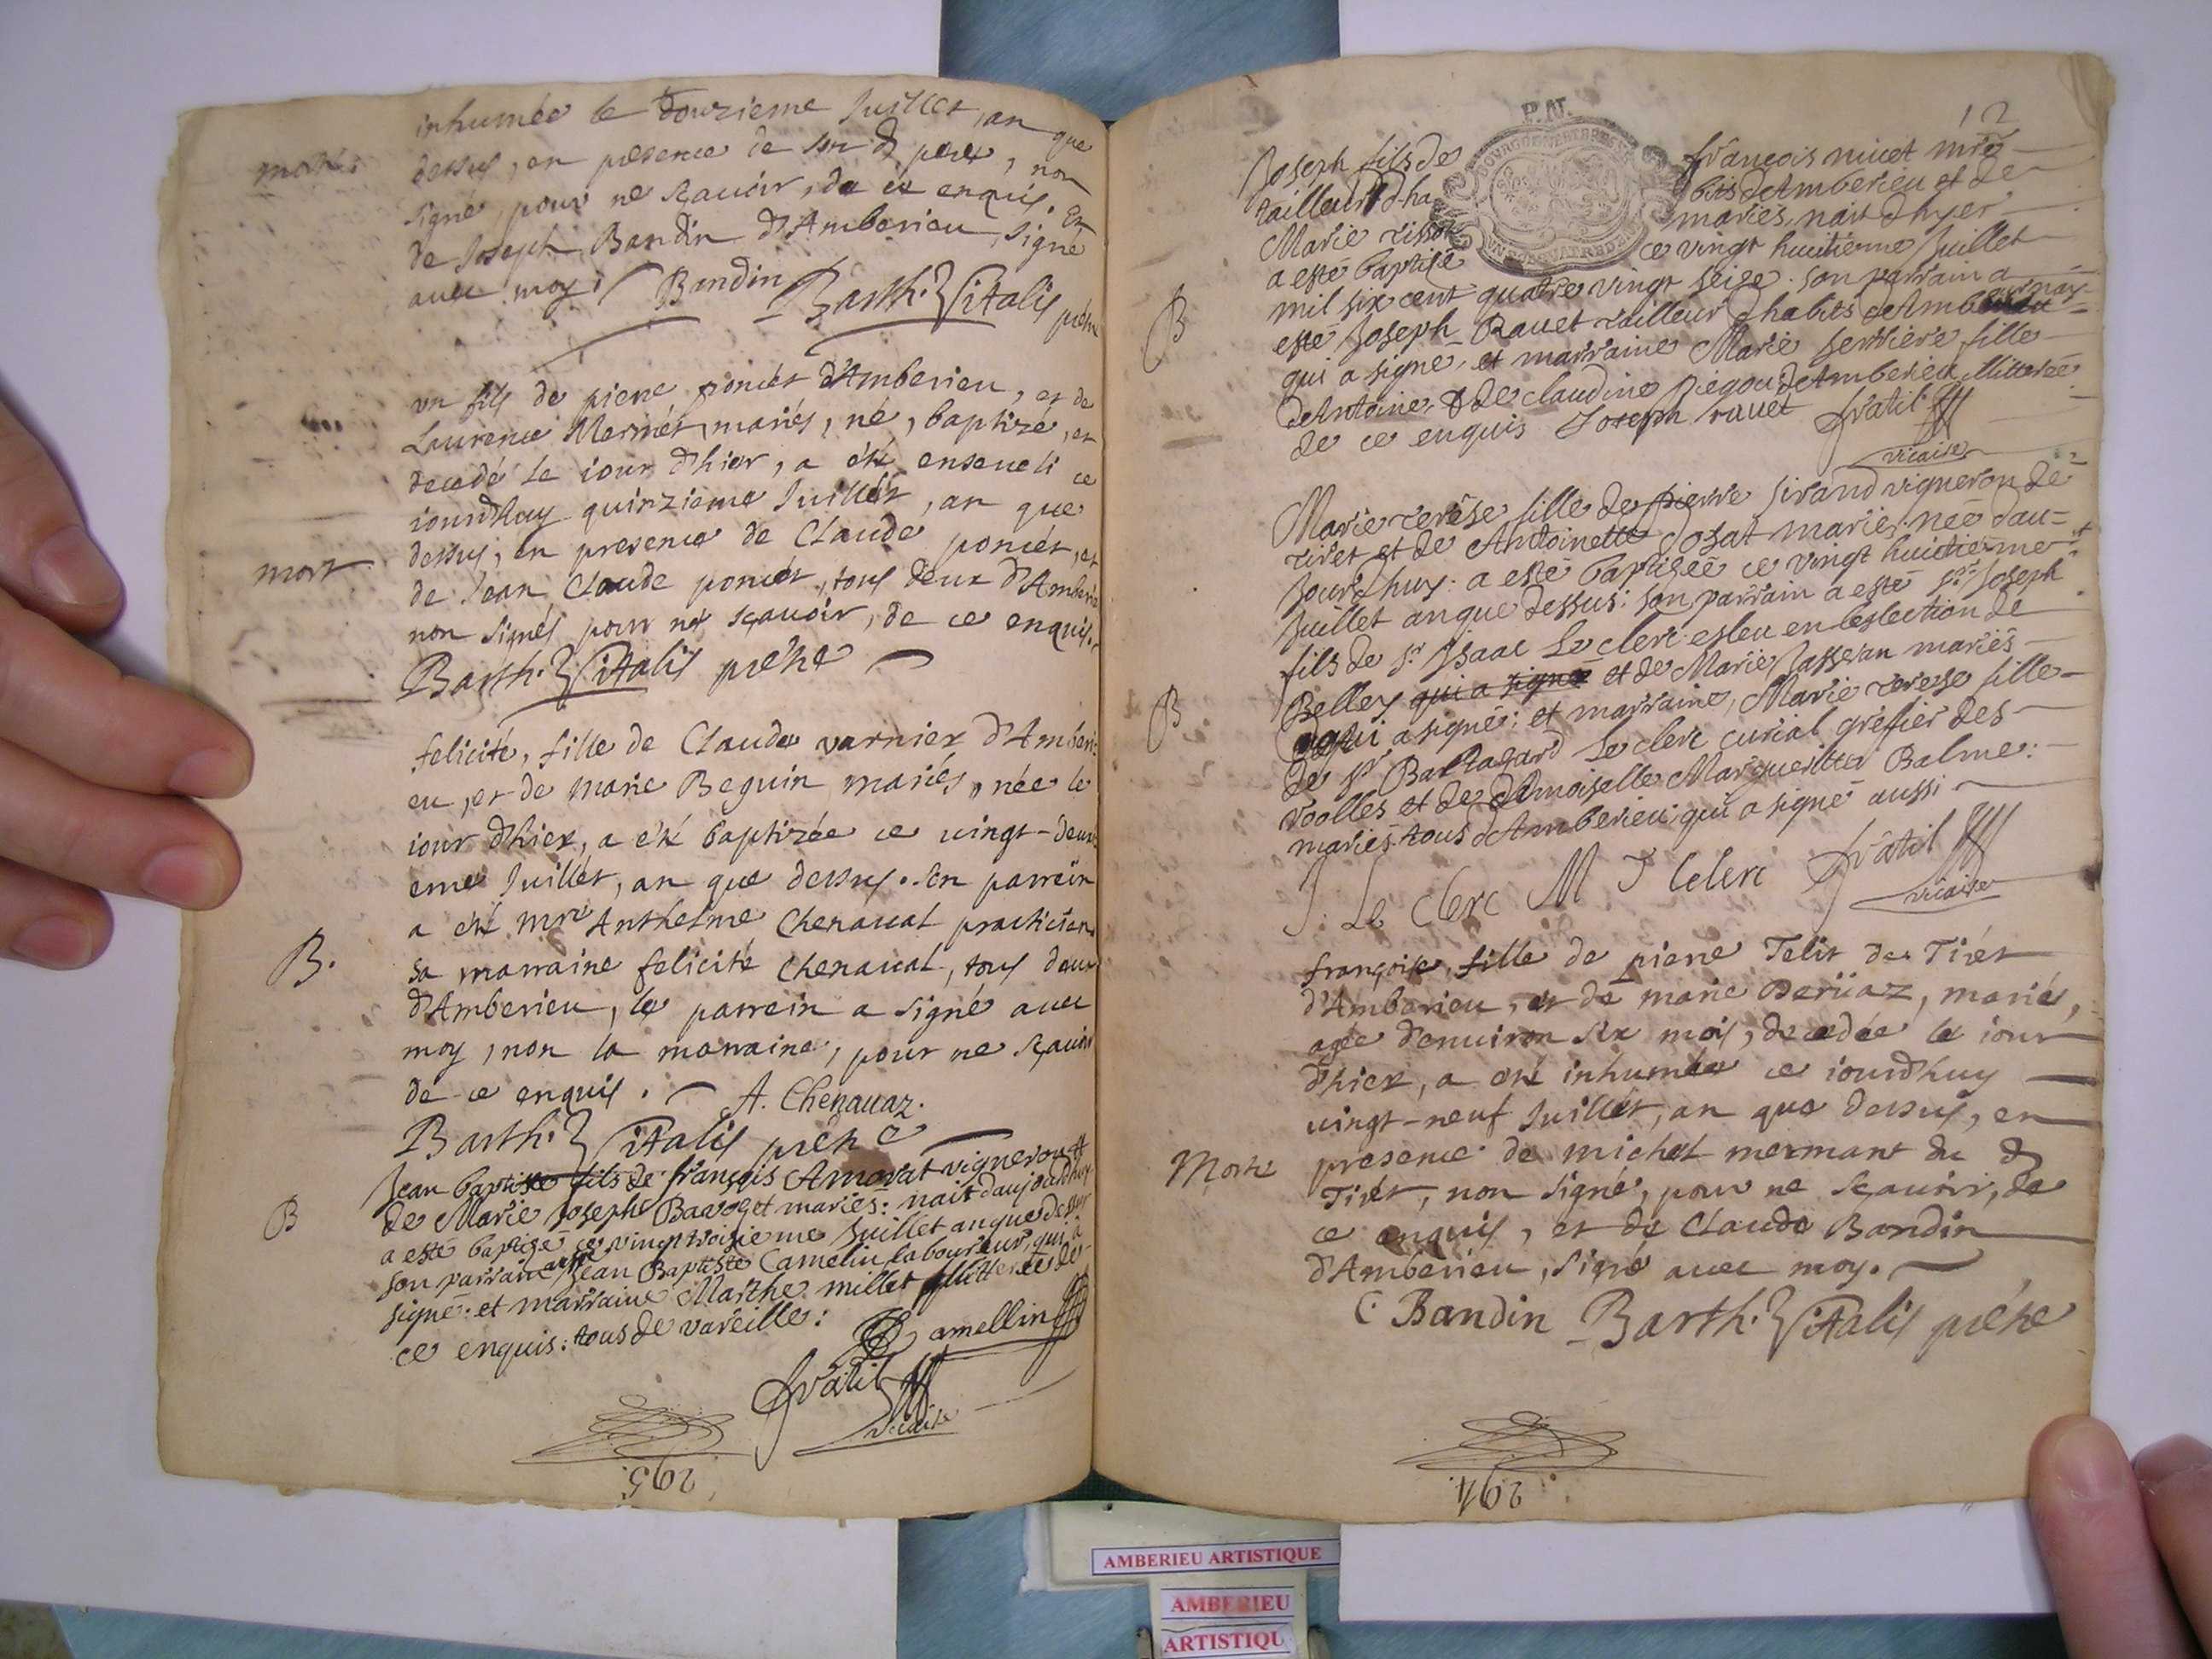 inhumée le douzieme Juillet, an que
morte
dessus, en presence de son d pere, non
signé pour ne scauoir, de ce enquis. Et
de Joseph Bandin d'Amberieu, signé
auec moy. Bandin Barth. Vitalis prêtre
un fils de pierre poncet d'Amberieu, et de
Laurence Mermet, mariés, né, baptizé, et
decedé le iour d'hier, a été enseueli ce
iourdhuy quinzieme Juillet, an que
dessus, en presence de Claude poncet, et
mort
de Jean Claude poncet, tous deux d'Amberie
non signés pour ne scauoir, de ce enquis.
Barth. Vitalis prêtre
felicité, fille de Claude varnier d'Amberi:
eu, et de marie Beguin mariés, née le
iour d'hier, a été baptizée ce uingt-deux
eme Juillet, an que dessus. son parrein
a été mre Anthelme Chenaual practicien
B.
sa marraine felicité Chenaual, tous deux
d'Amberieu, le parrein a signé auec
moy, non la marraine, pour ne scauoir
de ce enquis. A. Chenauaz.
Barth. Vitalis prêtre
Jean baptiste fils de françois Amorat vigneron et
B
de Marie Josephe mariés: nait daujourdhuy
a esté baptisé ce vingt troisieme Juillet an que dessus
son parrain a esté Jean Baptiste Camelin laboureur, qui a
signé: et marraine Marthe millet illitterée de
ce enquis: tous de vareille:
Camellin
fratil
vicaire
295.
P.N.
12
Joseph fils de françois nicet mre
tailleur d'habits d'Amberieu et de
Marie tissot mariés, nait d'hyer
a esté baptisé ce vingt huitième Juillet
mil six cent quatre vingt seize. son parrain a
B
esté Joseph Rauet tailleur d'habits
qui a signé, et marraine Marie serriere fille
d'Antoine & de claudine d'Amberieu illiterée
de ce enquis Joseph rauet fratil
vicaire
Marie terèse fille de pierre sirand vigneron de
tiret et de Antoinette Josat mariés. née d'au=
jourd'huy: a esté baptisée ce vingt huitième
Juillet an que dessus: son parrain a esté sr. Joseph
fils de sr Isaac Le clerc esleu en leslection de
B
Belley qui a signé et de Marie mariés
qui a signé: et marraine, Marie terese fille
de sr Le clerc curial grefier des
roolles et de damoiselle Margueritte Balme:
mariés. tous d'Amberieu, qui a signé aussi
J. Le Clerc M T leclerc fratil
vicaire
françoise, fille de pierre Telit de Tirét
d'Amberieu, et de marie Deriiaz, mariés,
agée d'enuiron six mois, decedée le iour
d'hier, a été inhumée ce iourdhuy
uingt-neuf Juillet, an que dessus, en
Morte
presence de michel mermant du d
Tirét, non signé, pour ne scauoir, de
ce enquis, et de Claude Bandin
d'Amberieu, signé auec moy.
C Bandin Barth. Vitalis prêtre
294.
AMBERIEU ARTISTIQUE
AMBERIEU
ARTISTIQU